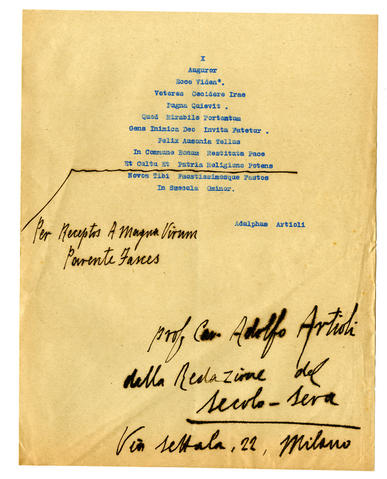 X
Auguror
Ecce Viden*.
Veteres Cecidere Irae
Pugna Quievit .
Quod Mirabile Portentum
Gens Inimica Deo Invita Fatetur .
Felix Ausonia Tellus
In Commune Bonum Restituta Pace
Et Cultu Et Patria Religione Potens
Novos Tibi Faustissimosque Fastos
In Saecula Ominor.
Adalphus Artioli
Per Receptos A Magna Virum
Parente Fasces
Prof. Cav. Adolfo Artioli
della Redazione del
Secolo-Sera
Via Settala, 22, Milano